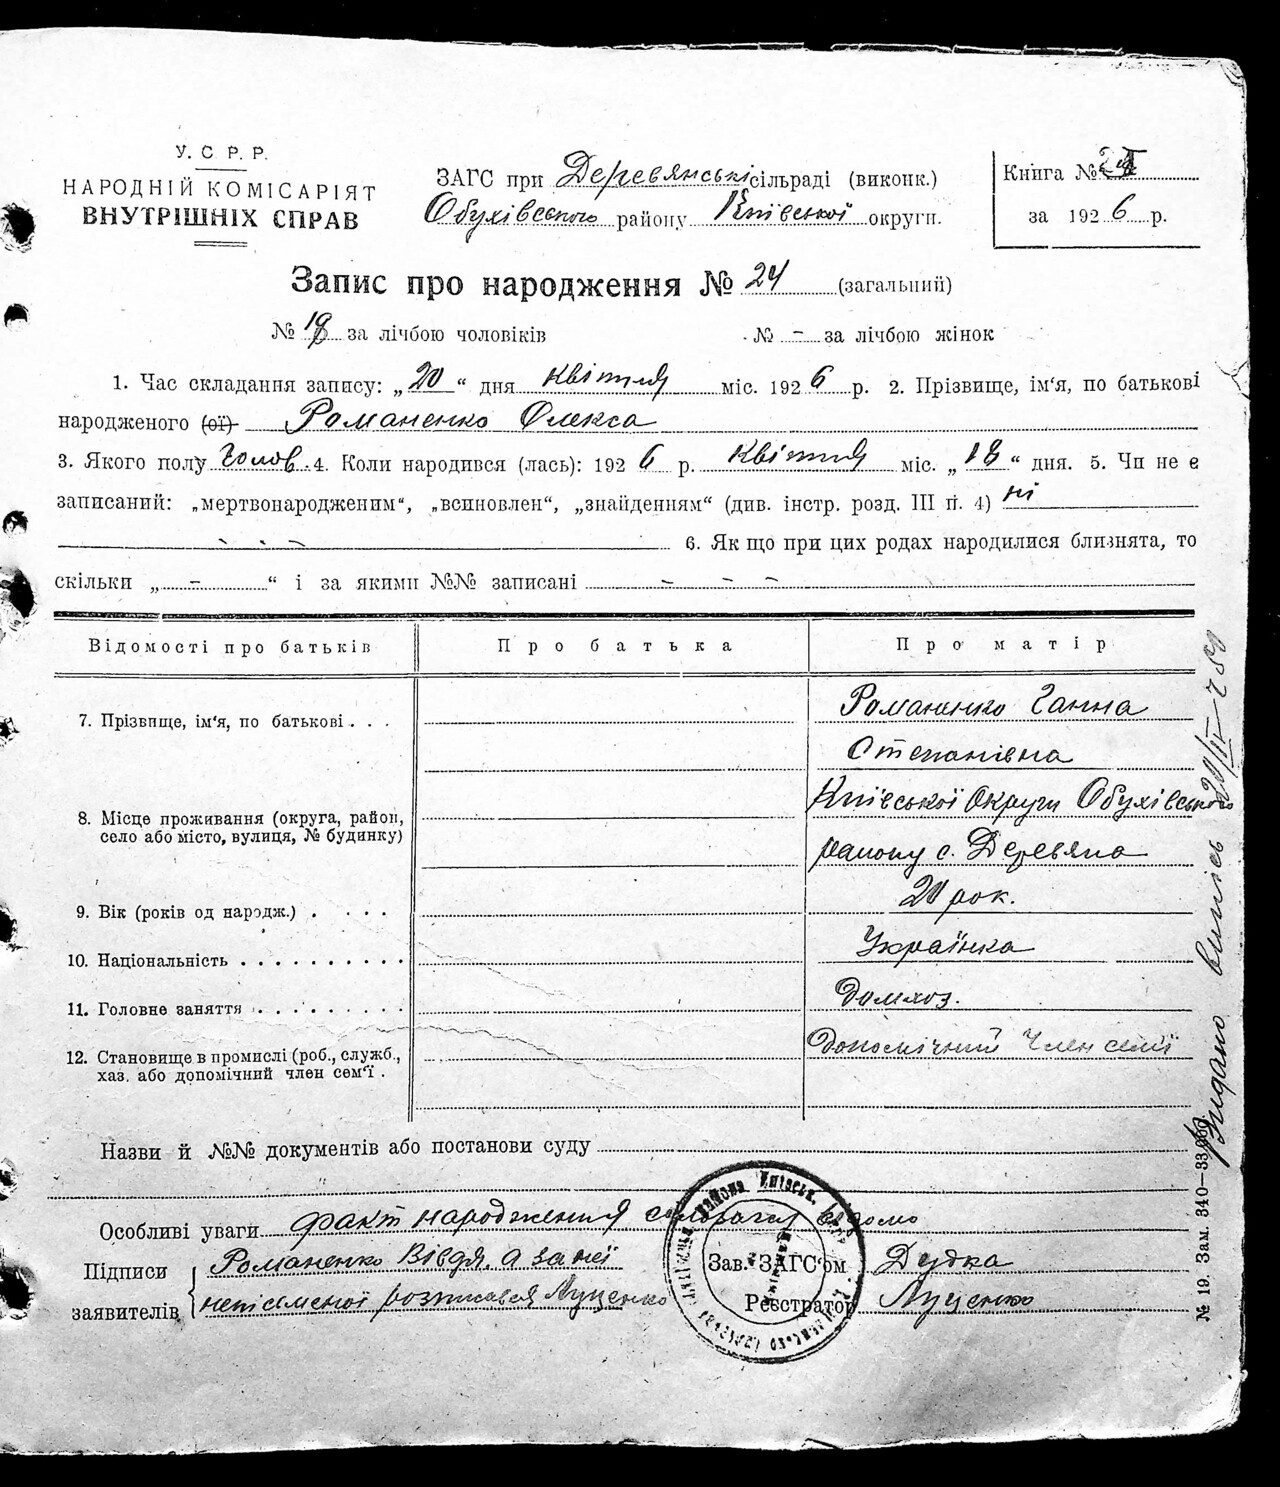 У. С Р. Р.
НАРОДНІЙ КОМІСАРІЯТ
ВНУТРІШНІХ СПРАВ
ЗАГС при Деревянські сільраді (виконк.)
Обухівського району Київської округи.
Книга №
за 1926 р.
Запис про народження № 24 (загальний)
№ 18 за лічбою чоловіків № - за лічбою жінок
1. Час складання запису: „20" дня квітня міс. 1926 р. 2. Прізвище, ім'я, по батькові
народженого (ої) Романенко Олекса
3. Якого полу чолов. 4. Коли народився (лась): 1926 р. квітня міс. „18" дня. 5. Чи не є
записаний: „мертвонародженим", „всиновлен", „знайденням" (див. інстр. розд. III п. 4) ні
- - - 6. Як що при цих родах народилися близнята, то
скільки „ - " і за якими №№ записані - - -
Відомості про батьків Про батька Про матір
7. Прізвище, ім'я, по батькові . . . Романенко Ганна
Степанівна
8. Місце проживання (округа, район,
село або місто, вулиця, № будинку)
Київської Округи Обухівського
району с. Деревяна
9. Вік (років од народж.) . . . . 20 рок.
10. Національність . . . . . . . . . . Українка
11. Головне заняття . . . . . . . . . Домхоз.
12. Становище в промислі (роб., служб.,
хаз. або допомічний член сем'ї .
Допомічний член семї
Назви й №№ документів або постанови суду
Особливі уваги факт народження сільраді відомо
Підписи
заявителів
Романенко Вівдя, а за неї
неписьменої розписався Луценко
Зав. ЗАГС'ом Дудка
Реєстратор Луценко
Видано випись
№ 19. Зам. 340—33.000.